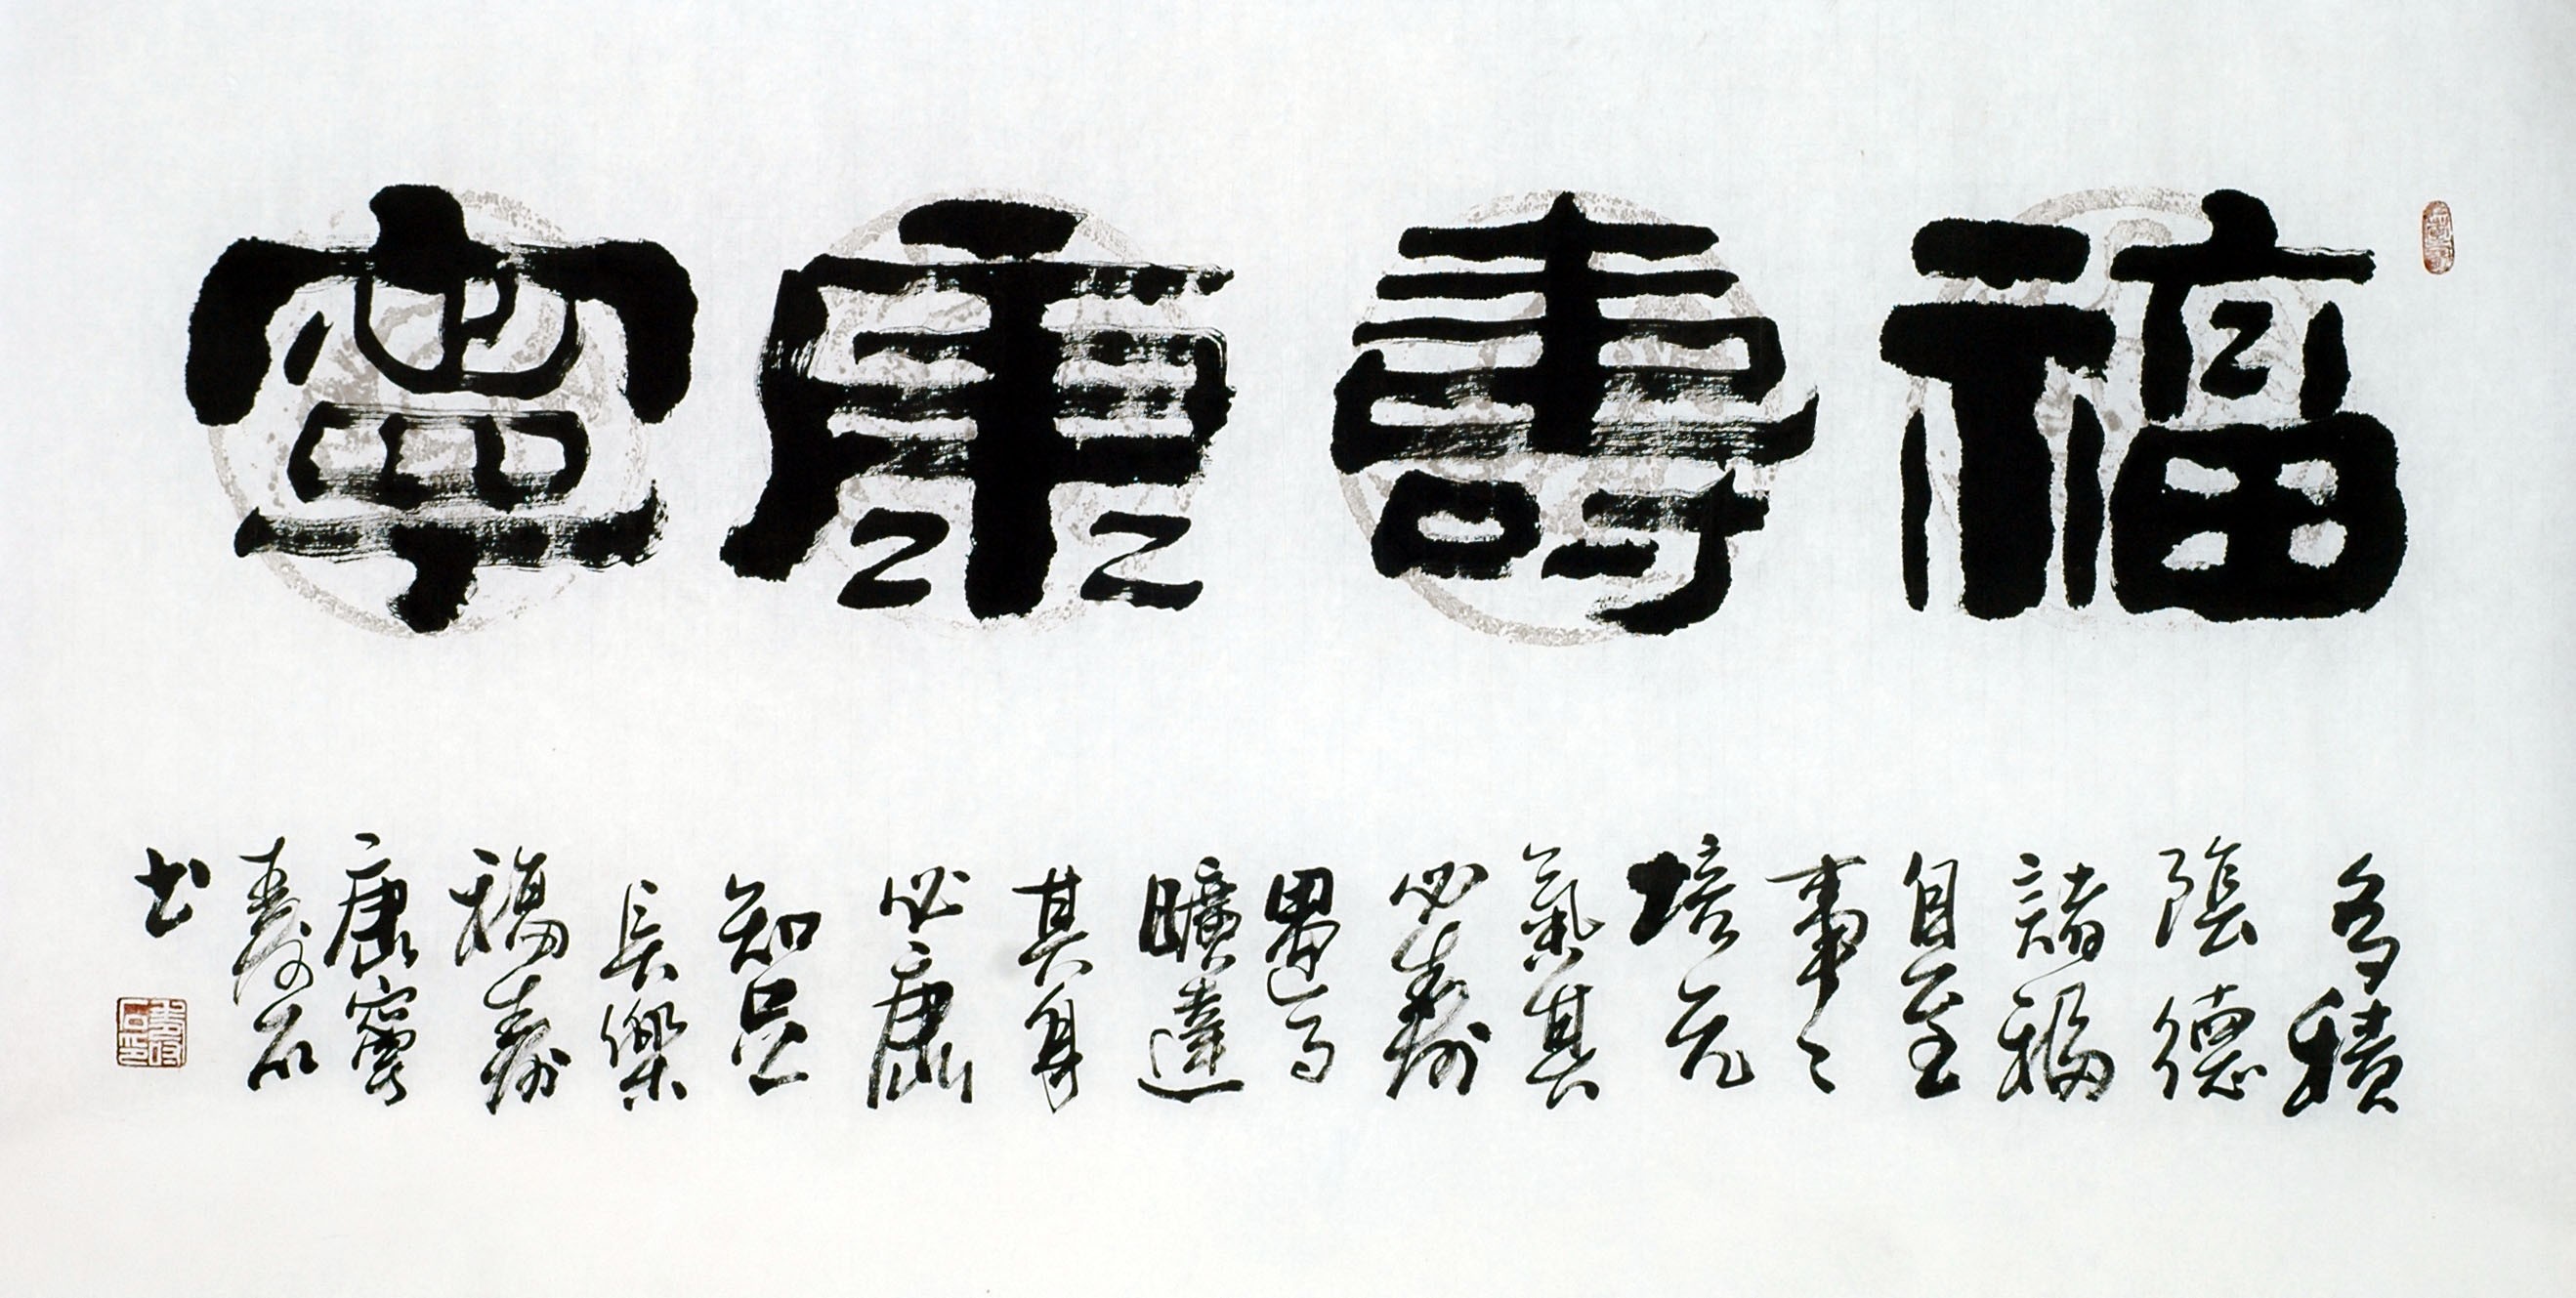 福壽康寧
多積
陰德
諸福
自至
事々
培元
氣其
必壽
遇事
曠達
其身
必康
知足
長樂
福壽
康寧
壽石
書